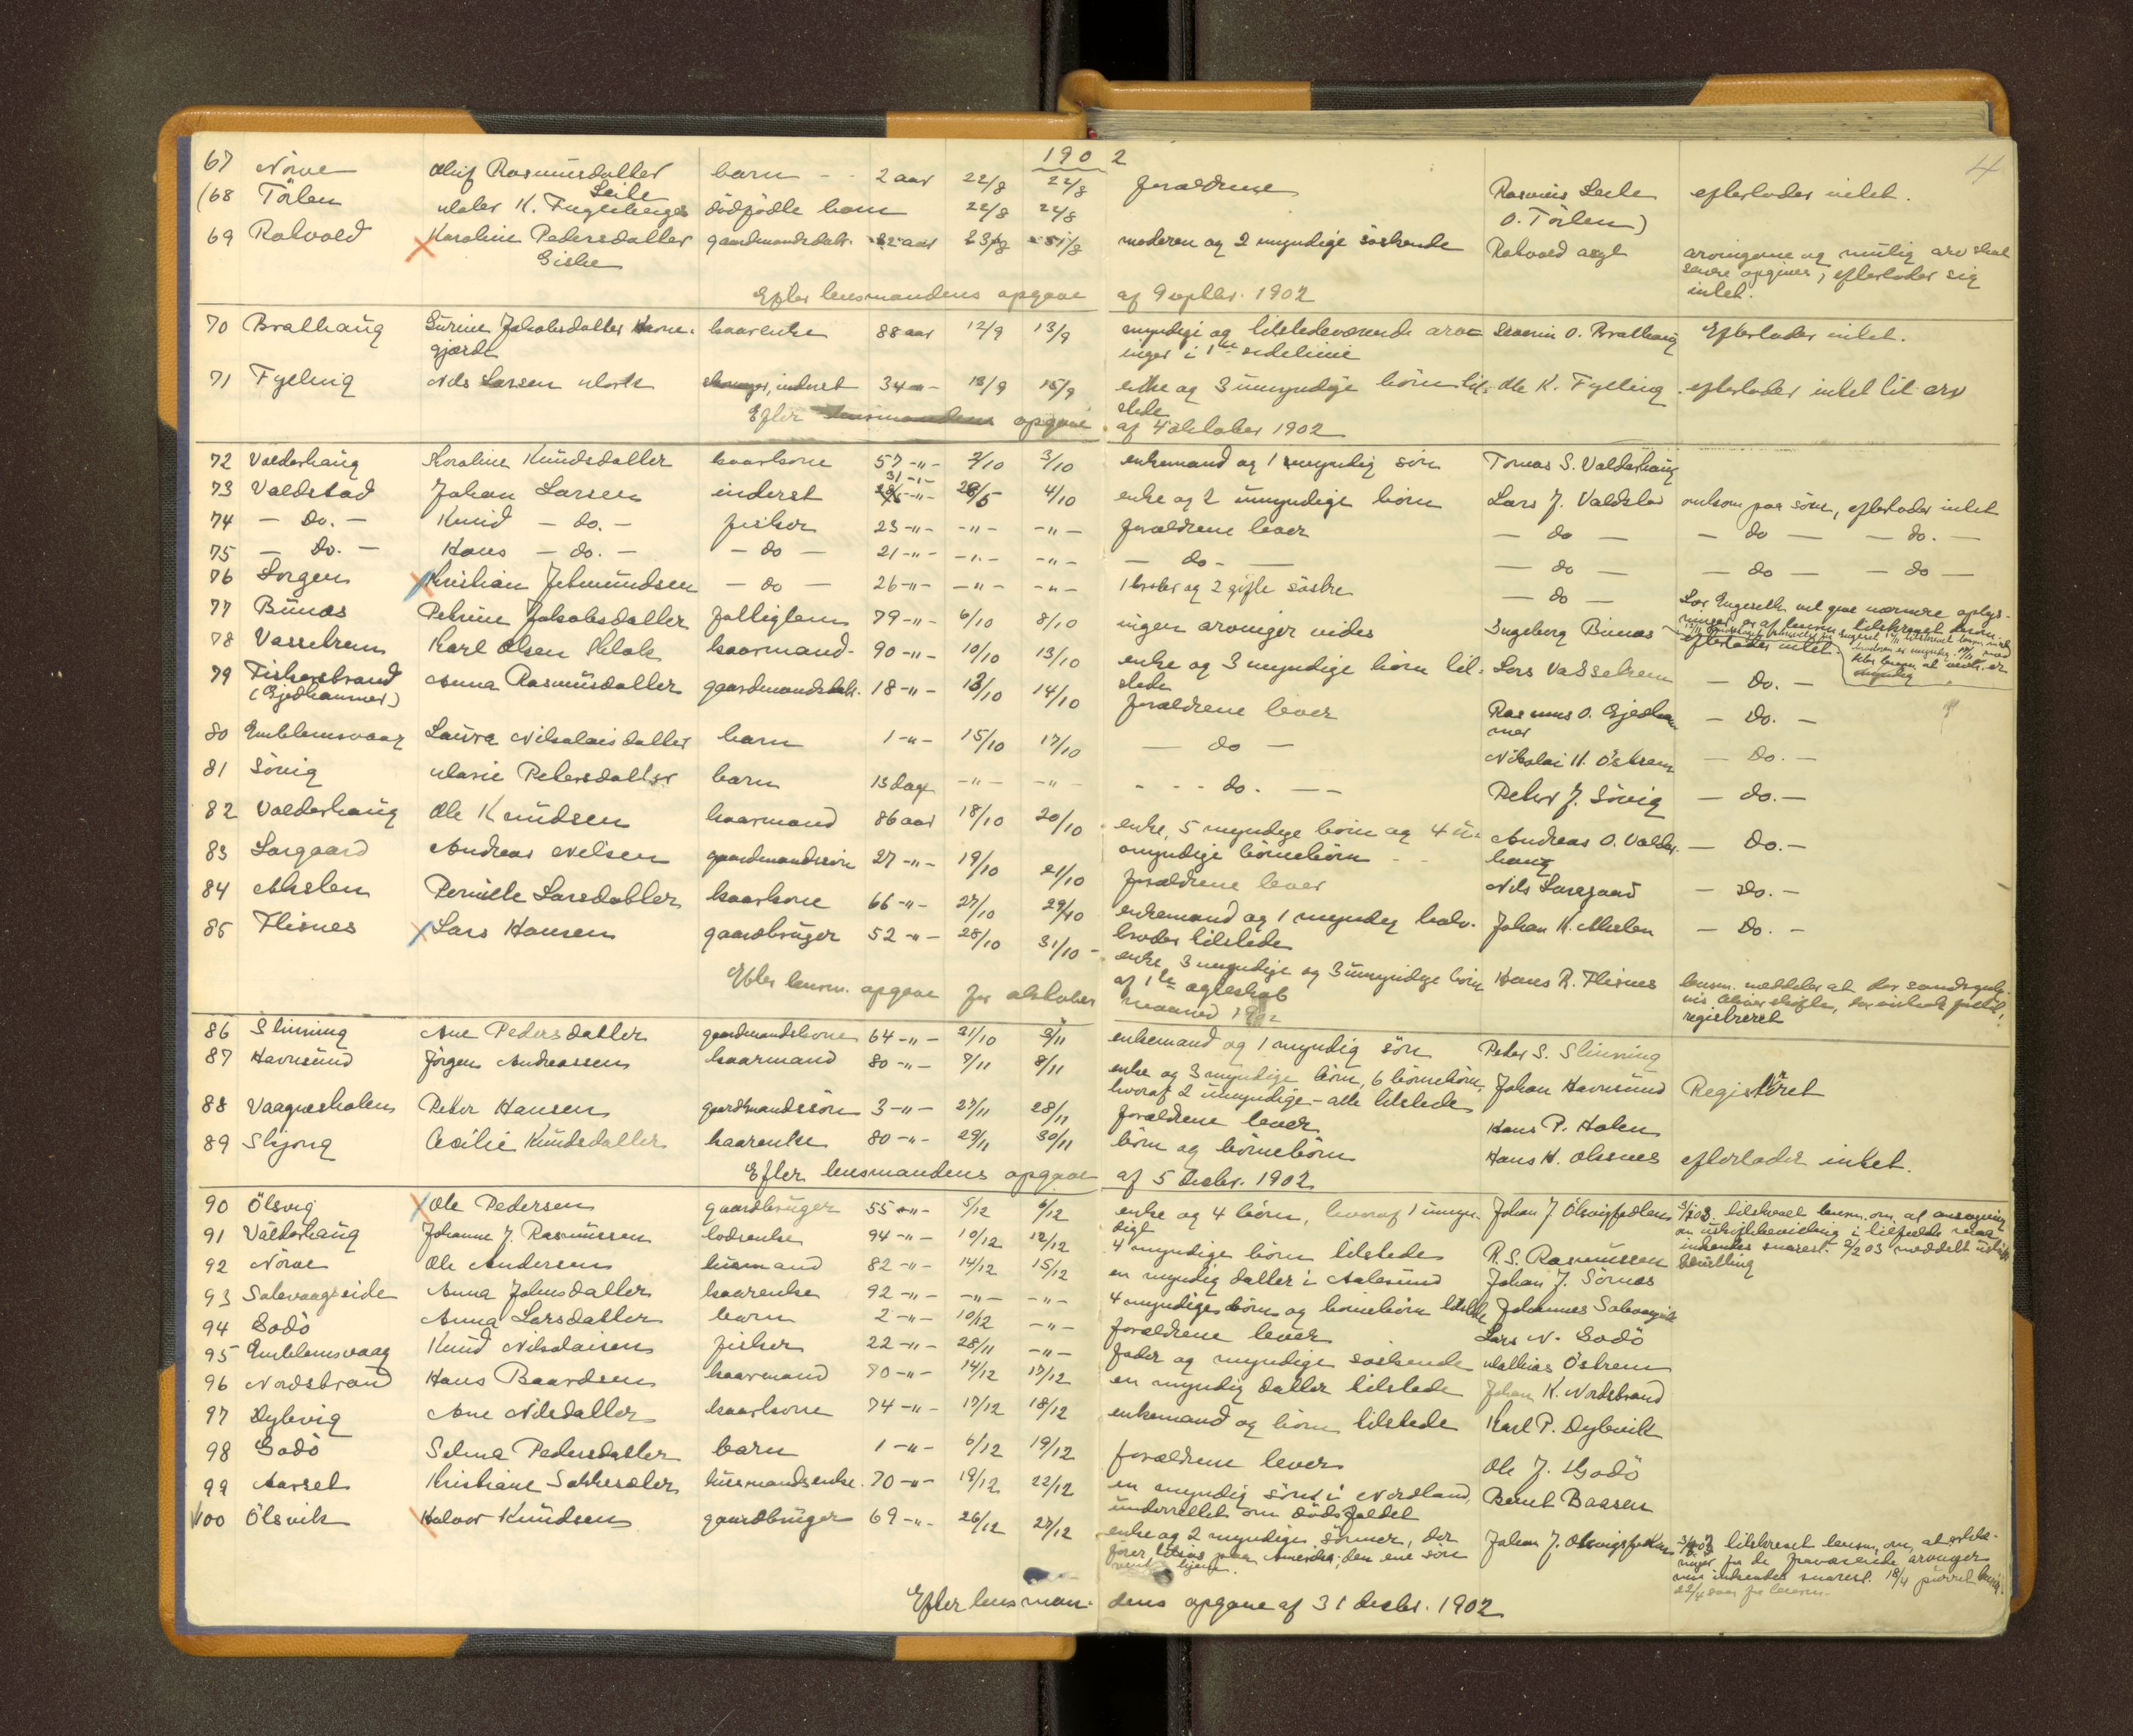 1902
4
67 Nörve Oluf Rasmusdatter Leite barn - - 2 aar 22/8 22/8 forældrene Rasmus Leite efterlader intet.
(68 Törlen K. Fuglebergs dödfödte barn 22/8 22/8 O. Törlen)
69 Rotvold Karoline Pedersdatter Giske gaardmandsdatr. 23/8 moderen og 2 myndige söskende Rotvold asyl arvingerne og mulig arv skal
senere opgives, efterlader sig
intet.
Efter lensmandens opgave af 9 septbr. 1902
70 Brathaug Surine Jakobsdatter kaarenke 88 aar 12/9 13/9 myndige og tilstedeværende arv- Severin O. Brathaug Efterlader intet.
gjerde inger i 1ste sidelinie
71 Fylling Nils Larsen inderst 34 - 13/9 15/9 enke og 3 umyndige börn til- Ole K. Fylling efterlader intet til arv
stede
Efter lensmandens opgave af 4 oktober 1902
72 Valderhaug Karoline Knudsdatter kaarkone 57 -"- 2/10 3/10 enkemand og 1 myndig sön Tomas S. Valderhaug
73 Valdstad Johan Larsen inderst 31 -"- 28/5 4/10 enke og 2 umyndige börn Lars J. Valdstad omkom paa söen, efterlader intet
74 - Do. - Knud - do. - fisker 23 -"- -"- -"- forældrene lever - do - - do - - do. -
75 - Do. - Hans - do. - - do - 21 -"- -"- -"- - do - - do - - do - - do -
76 Sorgen Kristian Jetmundsen - do - 26 -"- -"- -"- 1 broder og 2 gifte söstre - do - Lars Engeseth vil give nærmere oplys-
77 Bunæs Petrine Jakobsdatter fattiglem 79 -"- 6/10 8/10 ingen arvinger vides Ingeborg Bunæs efterlader intet.
78 Vasstrem Karl Olsen Klok kaarmand 90 -"- 10/10 13/10 enke og 3 myndige börn til- Lars Vasstrem - Do. -
stede
79 Fiskerstrand Anna Rasmusdatter gaardmandsdatr. 18 -"- 13/10 14/10 forældrene lever Rasmus O. Gjedham - Do. -
(Gjedhammer) mer
80 Emblemsvaag Laura Nikolaisdatter barn 1 -"- 15/10 17/10 - do - Nikolai H. Östrem - Do. -
81 Sövig Marie Petersdatter barn 13 dag -"- -"- - - - do. - - Peter J. Sövig - do. -
82 Valderhaug Ole Knudsen kaarmand 86 aar 18/10 20/10 enke, 5 myndige börn og 4 u- Andreas O. Valder- - Do. -
myndige börnebörn haug
83 Sorgaard Andreas Nilsen gaardmandssön 27 -"- 19/10 21/10 forældrene lever Nils Sorgaard - Do. -
84 Alslen Pernille Larsdatter kaarkone 66 -"- 27/10 29/10 enkemand og 1 myndig halv- Johan K. Alslen - Do. -
broder tilstede
85 Flisnes Lars Hansen gaardbruger 52 -"- 28/10 31/10 enke, 3 myndige og 3 umyndige börn Hans R. Flisnes lensm. meddeler at der sandsynlig-
af 1ste ægteskab
registreret
Efter lensm. opgave for oktober maaned 1902
86 Slinning Ane Pedersdatter gaardmandskone 64 -"- 31/10 3/11 enkemand og 1 myndig sön Peder S. Slinning
87 Havnsund Jörgen Andreassen kaarmand 80 -"- 7/11 8/11 enke og 3 myndige börn, 6 börnebörn, Johan Havnsund Registreret
hvoraf 2 umyndige - alle tilstede
88 Vaagnesholen Peter Hansen gaardmandssön 3 -"- 27/11 28/11 forældrene lever Hans P. Holen
89 Skjong Cecilie Knudsdatter kaarenke 80 -"- 29/11 30/11 börn og börnebörn Hans H. Alsnes efterlader intet.
Efter lensmandens opgave af 5 decbr. 1902
90 Ölsvig Ole Pedersen gaardbruger 55 -"- 5/12 6/12 enke og 4 börn, hvoraf 1 umyn- Johan J Ölsvig tilskrevet lensm. om, at ansögning
digt om uskiftebevilling i tilfælde maa
91 Valderhaug Johanne J. Rasmussen lodsenke 94 -"- 10/12 12/12 4 myndige börn tilstede R. S. Rasmussen indsendes snarest. 2/2 03 meddelt
bevilling
92 Nörve Ole Andersen husmand 82 -"- 14/12 15/12 en myndig datter i Aalesund Johan J. Sörnes
93 Solevaagseide Anna Johnsdatter kaarenke 92 -"- -"- -"- 4 myndige börn og börnebörn tilstede Johannes Solevaagseide
94 Godö Anna Larsdatter barn 2 -"- 10/12 -"- forældrene lever Lars N. Godö
95 Emblemsvaag Knud Nikolaisen fisker 22 -"- 28/11 -"- fader og myndige söskende Mathias Östrem
96 Nordstrand Hans Baardsen kaarmand 70 -"- 14/12 17/12 en myndig datter tilstede Johan K. Nordstrand
97 Dybvig Ane Nilsdatter kaarkone 74 -"- 17/12 18/12 enkemand og börn tilstede Karl P. Dybvik
98 Godö Selma Pedersdatter barn 1 -"- 6/12 19/12 forældrene lever Ole J. Godö
99 Aarset Kristiane Sakkesdatter husmandsenke. 70 -"- 19/12 22/12 en myndig sön i Nordland, Bernt Baasen
underrettet om dödsfaldet
100 Ölsvik Halvor Knudsen gaardbruger 69 -"- 26/12 27/12 enke og 2 myndige sönner, der Johan J. Ölsvig tilskrevet lensm. om, at
Amerika; den ene sön fra de fraværende arvinger
indsendes snarest. 18/4 purret
22/4 svar fra lensm.
Efter lensman- dens opgave af 31 decbr. 1902